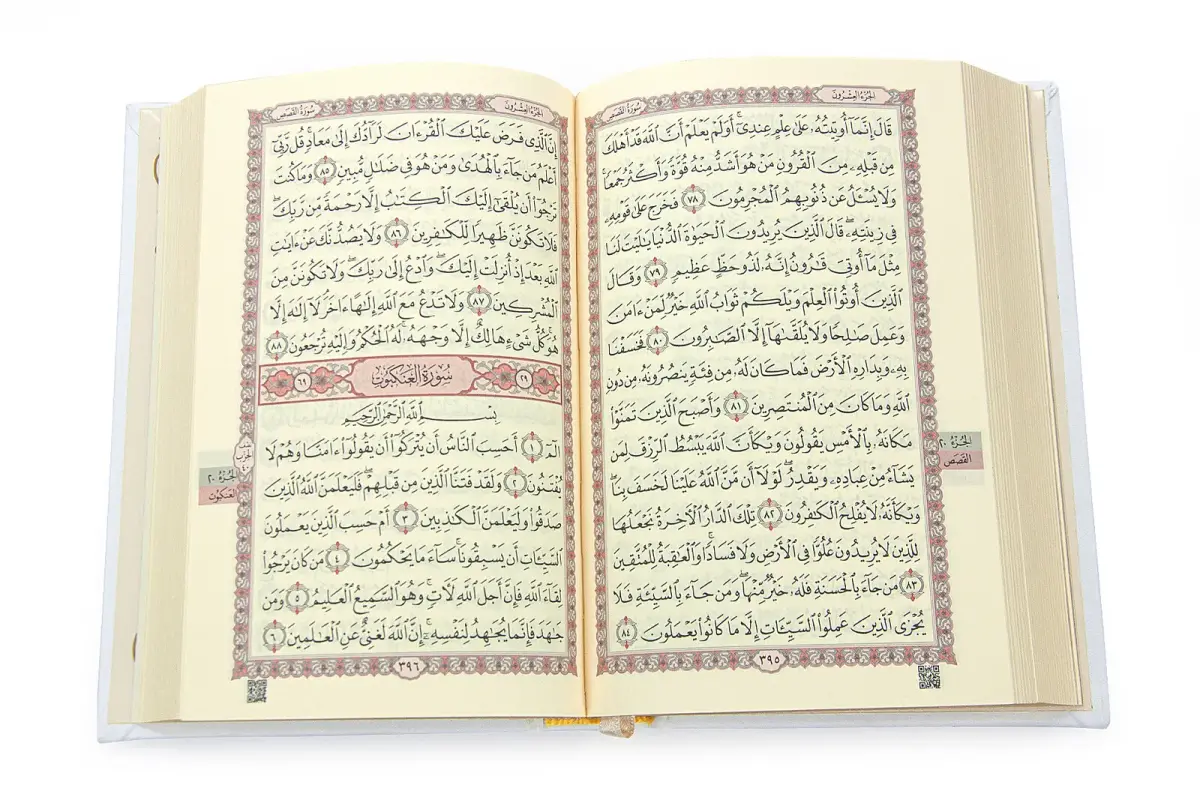 سُورَةُ القَصَصِ الجُزْءُ العِشْرُونَ
قَالَ إِنَّمَآ أُوتِيتُهُۥ عَلَىٰ عِلْمٍ عِندِىٓ ۚ أَوَلَمْ يَعْلَمْ أَنَّ ٱللَّهَ قَدْ أَهْلَكَ
مِن قَبْلِهِۦ مِنَ ٱلْقُرُونِ مَنْ هُوَ أَشَدُّ مِنْهُ قُوَّةً وَأَكْثَرُ جَمْعًا ۚ
وَلَا يُسْـَٔلُ عَن ذُنُوبِهِمُ ٱلْمُجْرِمُونَ ٧٨ فَخَرَجَ عَلَىٰ قَوْمِهِۦ
فِى زِينَتِهِۦ ۖ قَالَ ٱلَّذِينَ يُرِيدُونَ ٱلْحَيَوٰةَ ٱلدُّنْيَا يَـٰلَيْتَ لَنَا
مِثْلَ مَآ أُوتِىَ قَـٰرُونُ إِنَّهُۥ لَذُو حَظٍّ عَظِيمٍ ٧٩ وَقَالَ
ٱلَّذِينَ أُوتُوا۟ ٱلْعِلْمَ وَيْلَكُمْ ثَوَابُ ٱللَّهِ خَيْرٌ لِّمَنْ ءَامَنَ
وَعَمِلَ صَـٰلِحًا وَلَا يُلَقَّىٰهَآ إِلَّا ٱلصَّـٰبِرُونَ ٨٠ فَخَسَفْنَا
بِهِۦ وَبِدَارِهِ ٱلْأَرْضَ فَمَا كَانَ لَهُۥ مِن فِئَةٍ يَنصُرُونَهُۥ مِن دُونِ
ٱللَّهِ وَمَا كَانَ مِنَ ٱلْمُنتَصِرِينَ ٨١ وَأَصْبَحَ ٱلَّذِينَ تَمَنَّوْا۟
مَكَانَهُۥ بِٱلْأَمْسِ يَقُولُونَ وَيْكَأَنَّ ٱللَّهَ يَبْسُطُ ٱلرِّزْقَ لِمَن
يَشَآءُ مِنْ عِبَادِهِۦ وَيَقْدِرُ ۖ لَوْلَآ أَن مَّنَّ ٱللَّهُ عَلَيْنَا لَخَسَفَ بِنَا ۖ
وَيْكَأَنَّهُۥ لَا يُفْلِحُ ٱلْكَـٰفِرُونَ ٨٢ تِلْكَ ٱلدَّارُ ٱلْـَٔاخِرَةُ نَجْعَلُهَا
لِلَّذِينَ لَا يُرِيدُونَ عُلُوًّا فِى ٱلْأَرْضِ وَلَا فَسَادًا ۚ وَٱلْعَـٰقِبَةُ لِلْمُتَّقِينَ
٨٣ مَن جَآءَ بِٱلْحَسَنَةِ فَلَهُۥ خَيْرٌ مِّنْهَا ۖ وَمَن جَآءَ بِٱلسَّيِّئَةِ فَلَا
يُجْزَى ٱلَّذِينَ عَمِلُوا۟ ٱلسَّيِّـَٔاتِ إِلَّا مَا كَانُوا۟ يَعْمَلُونَ ٨٤
٣٩٥
الجُزْءُ ٢٠
القَصَصِ
سُورَةُ القَصَصِ الجُزْءُ العِشْرُونَ
إِنَّ ٱلَّذِى فَرَضَ عَلَيْكَ ٱلْقُرْءَانَ لَرَآدُّكَ إِلَىٰ مَعَادٍ ۚ قُل رَّبِّىٓ
أَعْلَمُ مَن جَآءَ بِٱلْهُدَىٰ وَمَنْ هُوَ فِى ضَلَـٰلٍ مُّبِينٍ ٨٥ وَمَا كُنتَ
تَرْجُوٓا۟ أَن يُلْقَىٰٓ إِلَيْكَ ٱلْكِتَـٰبُ إِلَّا رَحْمَةً مِّن رَّبِّكَ ۖ
فَلَا تَكُونَنَّ ظَهِيرًا لِّلْكَـٰفِرِينَ ٨٦ وَلَا يَصُدُّنَّكَ عَنْ ءَايَـٰتِ
ٱللَّهِ بَعْدَ إِذْ أُنزِلَتْ إِلَيْكَ ۖ وَٱدْعُ إِلَىٰ رَبِّكَ ۖ وَلَا تَكُونَنَّ مِنَ
ٱلْمُشْرِكِينَ ٨٧ وَلَا تَدْعُ مَعَ ٱللَّهِ إِلَـٰهًا ءَاخَرَ ۘ لَآ إِلَـٰهَ إِلَّا
هُوَ ۚ كُلُّ شَىْءٍ هَالِكٌ إِلَّا وَجْهَهُۥ ۚ لَهُ ٱلْحُكْمُ وَإِلَيْهِ تُرْجَعُونَ ٨٨
٢٩ سُورَةُ العَنكَبُوتِ ٦٩
بِسْمِ ٱللَّهِ ٱلرَّحْمَـٰنِ ٱلرَّحِيمِ
الٓمٓ ١ أَحَسِبَ ٱلنَّاسُ أَن يُتْرَكُوٓا۟ أَن يَقُولُوٓا۟ ءَامَنَّا وَهُمْ لَا
يُفْتَنُونَ ٢ وَلَقَدْ فَتَنَّا ٱلَّذِينَ مِن قَبْلِهِمْ ۖ فَلَيَعْلَمَنَّ ٱللَّهُ ٱلَّذِينَ
صَدَقُوا۟ وَلَيَعْلَمَنَّ ٱلْكَـٰذِبِينَ ٣ أَمْ حَسِبَ ٱلَّذِينَ يَعْمَلُونَ
ٱلسَّيِّـَٔاتِ أَن يَسْبِقُونَا ۚ سَآءَ مَا يَحْكُمُونَ ٤ مَن كَانَ يَرْجُوا۟
لِقَآءَ ٱللَّهِ فَإِنَّ أَجَلَ ٱللَّهِ لَـَٔاتٍ ۚ وَهُوَ ٱلسَّمِيعُ ٱلْعَلِيمُ ٥ وَمَن
جَـٰهَدَ فَإِنَّمَا يُجَـٰهِدُ لِنَفْسِهِۦٓ ۚ إِنَّ ٱللَّهَ لَغَنِىٌّ عَنِ ٱلْعَـٰلَمِينَ ٦
٣٩٦
الحِزْبِ
٤٠
الجُزْءُ ٢٠
العَنكَبُوت